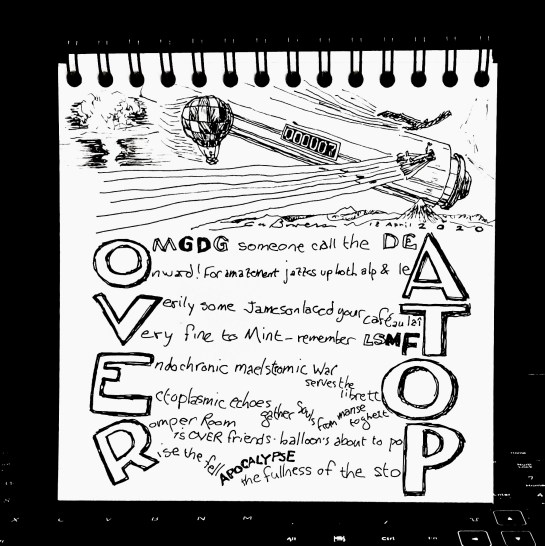 12 April 2020
OMGDG someone call the DEA
Onward! For amazement jazzes up both alp & leA
Verily some Jameson laced your café au laiT
Very fine to Mint - remember LSMFT
Endochronic maelstromic War serves the librettO
Ectoplasmic echoes gather souls from manse to ghettO
Romper Room is OVER friends - balloon's about to poP
Rise the fell APOCALYPSE the fullness of the stoP